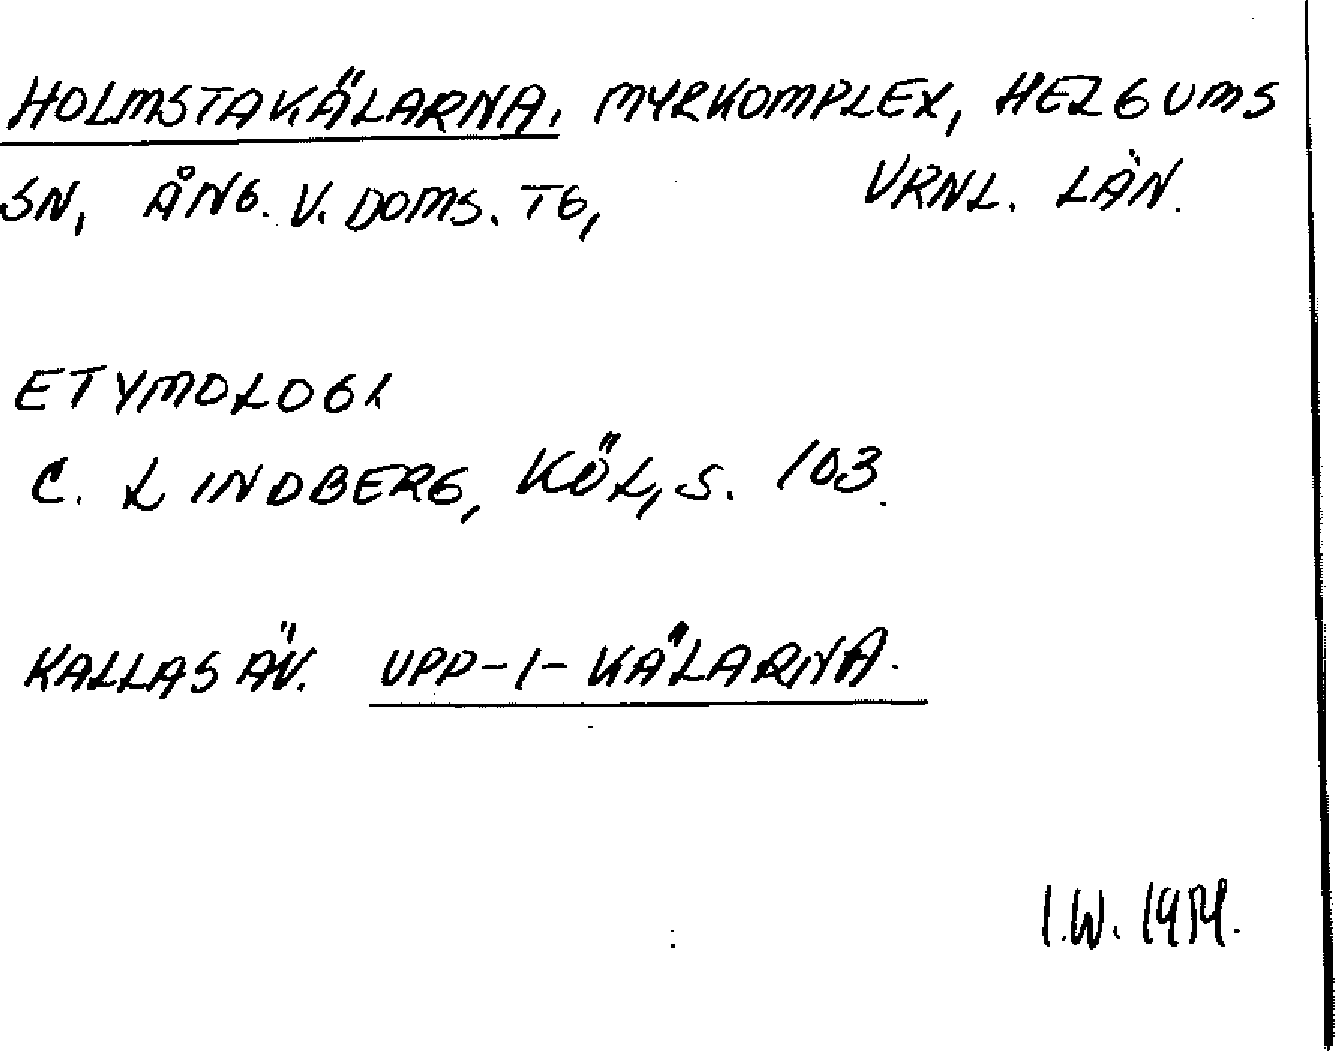 HOLMSTAKÄLARNA, MYRKOMPLEX, HELGUMS
SN, ÅNG. V. DOMS. TG, VRNL. LÄN.
ETYMOLOGI
C. LINDBERG, KÖL, S. 103.
KALLAS ÄV. UPP-I-KÄLARNA.
I.W.